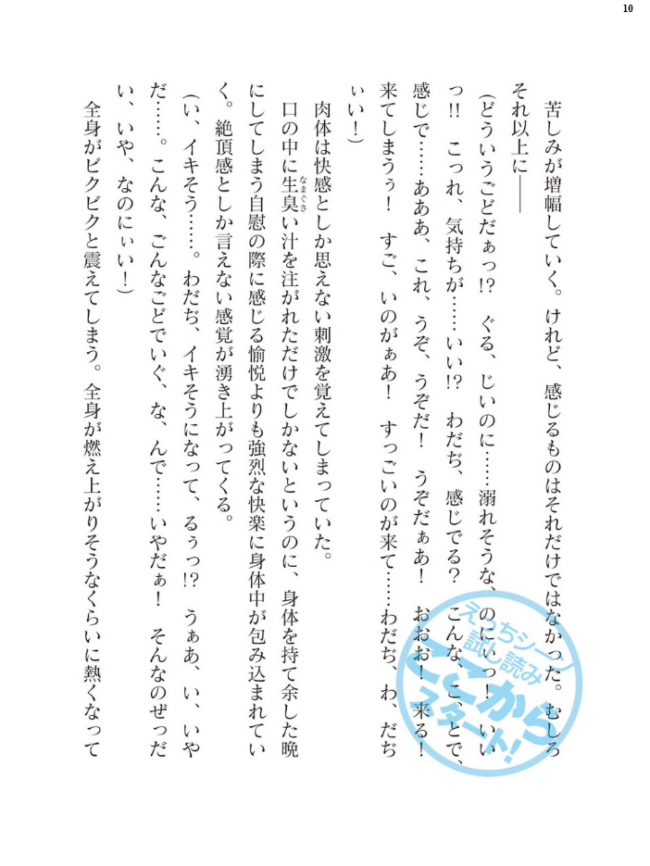 10
苦しみが増幅していく。けれど、感じるものはそれだけではなかった。むしろ
それ以上に――
(どういうごどだぁっ!? ぐる、じいのに……溺れそうな、のにぃっ! いい
っ!! こっれ、気持ちが……いい!? わだぢ、感じでる? こんな、こ、とで、
感じで……あああ、これ、うぞ、うぞだ! うぞだぁあ! おおお! 来る!
来てしまうぅ! すご、いのがぁあ! すっごいのが来て……わだぢ、わ、だぢ
ぃい!)
肉体は快感としか思えない刺激を覚えてしまっていた。
口の中に生臭い汁を注がれただけでしかないというのに、身体を持て余した晩
なまぐさ
にしてしまう自慰の際に感じる愉悦よりも強烈な快楽に身体中が包み込まれてい
く。絶頂感としか言えない感覚が湧き上がってくる。
(い、イキそう……。わだぢ、イキそうになって、るぅっ!? うぁあ、い、いや
だ……。こんな、ごんなごどでいぐ、な、んで……いやだぁ! そんなのぜっだ
い、いや、なのにぃい!)
全身がビクビクと震えてしまう。全身が燃え上がりそうなくらいに熱くなって
えっちシーン
試し読み
ここから
スタート!